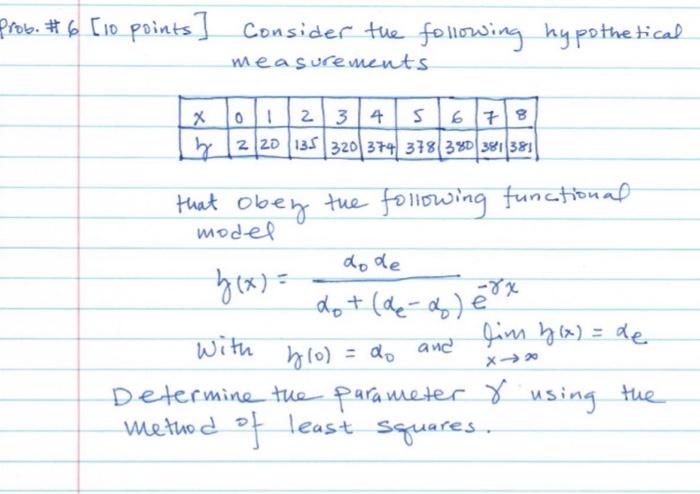 Prob. # 6 [10 points] Consider the following hypothetical
measurements
x 0 1 2 3 4 5 6 7 8
y 2 20 135 320 374 378 380 381 381
that obey the following functional
model
y(x) = α₀ αe / α₀ + (αe - α₀) e^-γx
With y(0) = α₀ and lim y(x) = αe
x → ∞
Determine the parameter γ using the
method of least squares.